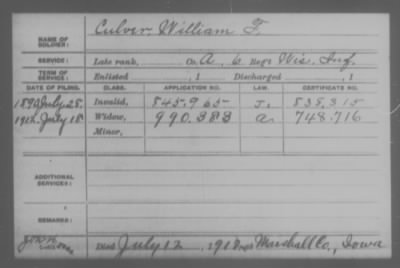 NAME OF SOLDIER: Culver William F.
SERVICE: Late rank, Co. A, 6 Reg't Wis. Inf.
TERM OF SERVICE: Enlisted , 1 Discharged , 1
DATE OF FILING. CLASS. APPLICATION NO. LAW. CERTIFICATE NO.
1890 July 28. Invalid, 845.965 J. 838.315
1912. July 18 Widow, 990.383 a. 748.716
Minor,
ADDITIONAL SERVICES:
REMARKS:
Died July 12, 1912 Marshall Co., Iowa